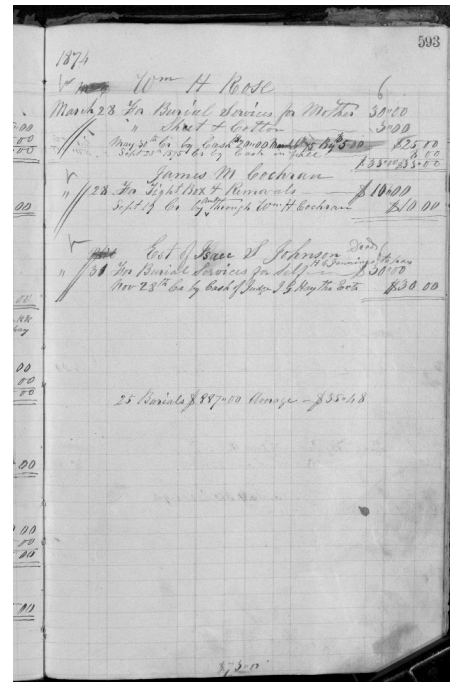 593
1874
Wm H Rose
March 28 For Burial Services for Mother 30.00
" Sheet & Cotton 3.00
May 30th Cr by Cash 20.00 By $5.00 $25.00
Sept 25th 1875 Cr by Cash in full 8.00
$33.00 $33.00
James M Cochran
" 28 For Tight Box & Removals $10.00
Sept 19 Cr by through Wm H Cochran $10.00
Est of Isaac S Johnson Dead
H Jennings to pay
" 31 For Burial Services for Self $30.00
Nov 28th Cr by Cash of Judge J G Exctr $30.00
25 Burials $887.00 Average - $35.48